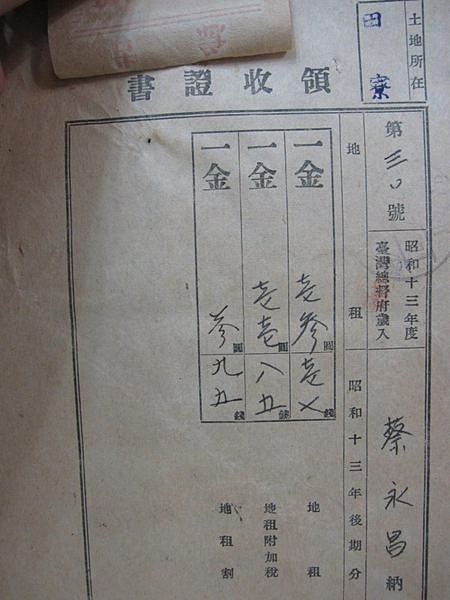 土地所在
田寮
領收證書
第三〇號
昭和十三年度
臺灣總督府歲入
蔡永昌納
地租
昭和十三年後期分
一金壱参圓壱錢 地租
一金壱壱圓八五錢 地租附加税
一金参圓九五錢 地租割